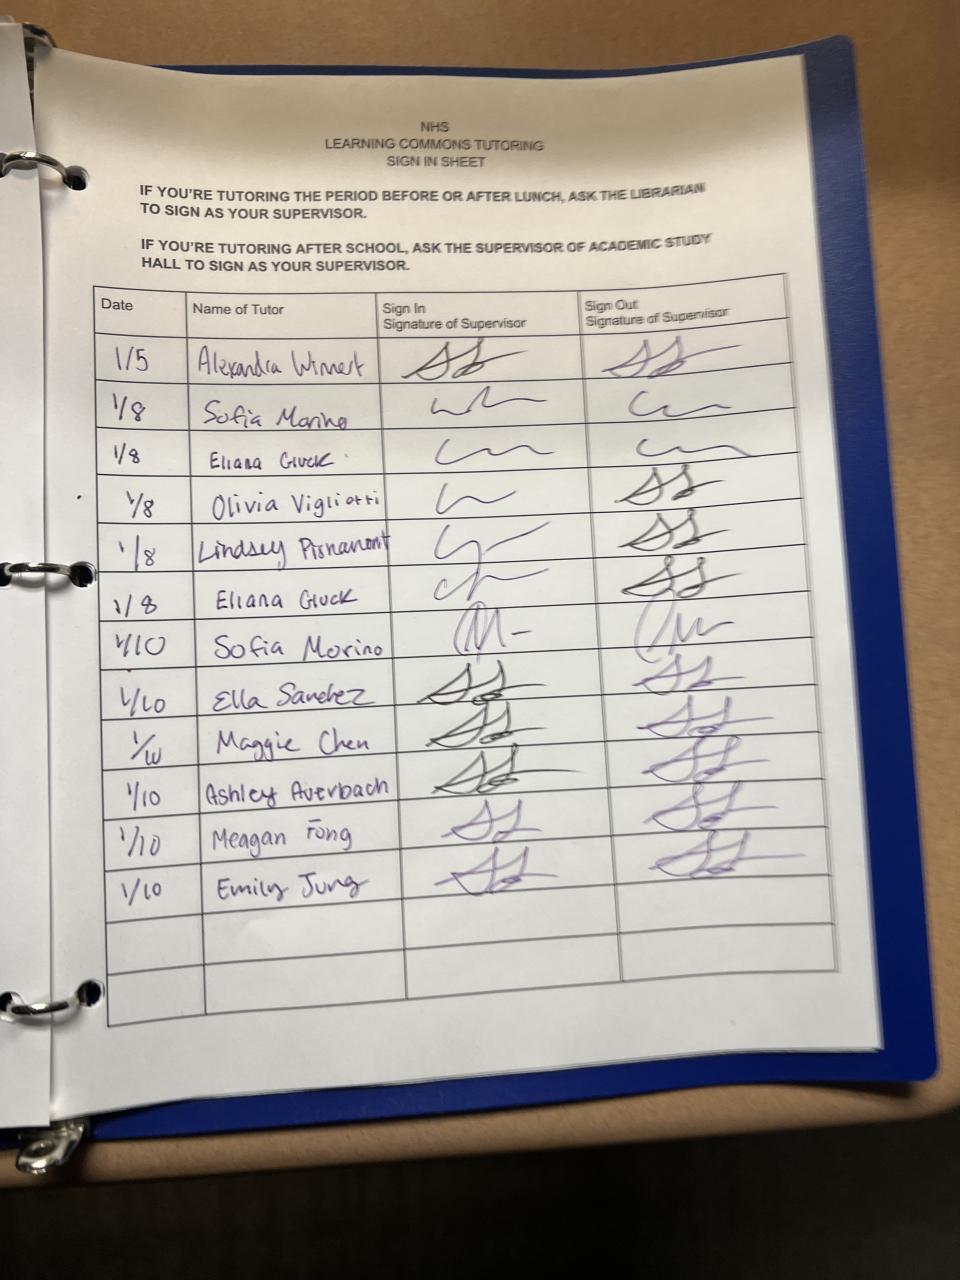 NHS
LEARNING COMMONS TUTORING
SIGN IN SHEET
IF YOU'RE TUTORING THE PERIOD BEFORE OR AFTER LUNCH, ASK THE LIBRARIAN
TO SIGN AS YOUR SUPERVISOR.
IF YOU'RE TUTORING AFTER SCHOOL, ASK THE SUPERVISOR OF ACADEMIC STUDY
HALL TO SIGN AS YOUR SUPERVISOR.
Date Name of Tutor Sign In Signature of Supervisor Sign Out Signature of Supervisor
1/5 Alexandra Winnert
1/8 Sofia Morino
1/8 Eliana Gluck
1/8 Olivia Vigliotti
1/8 Lindsey
1/8 Eliana Gluck
1/10 Sofia Morino
1/10 Ella Sanchez
1/10 Maggie Chen
1/10 Ashley Averbach
1/10 Meagan Fong
1/10 Emily Jung